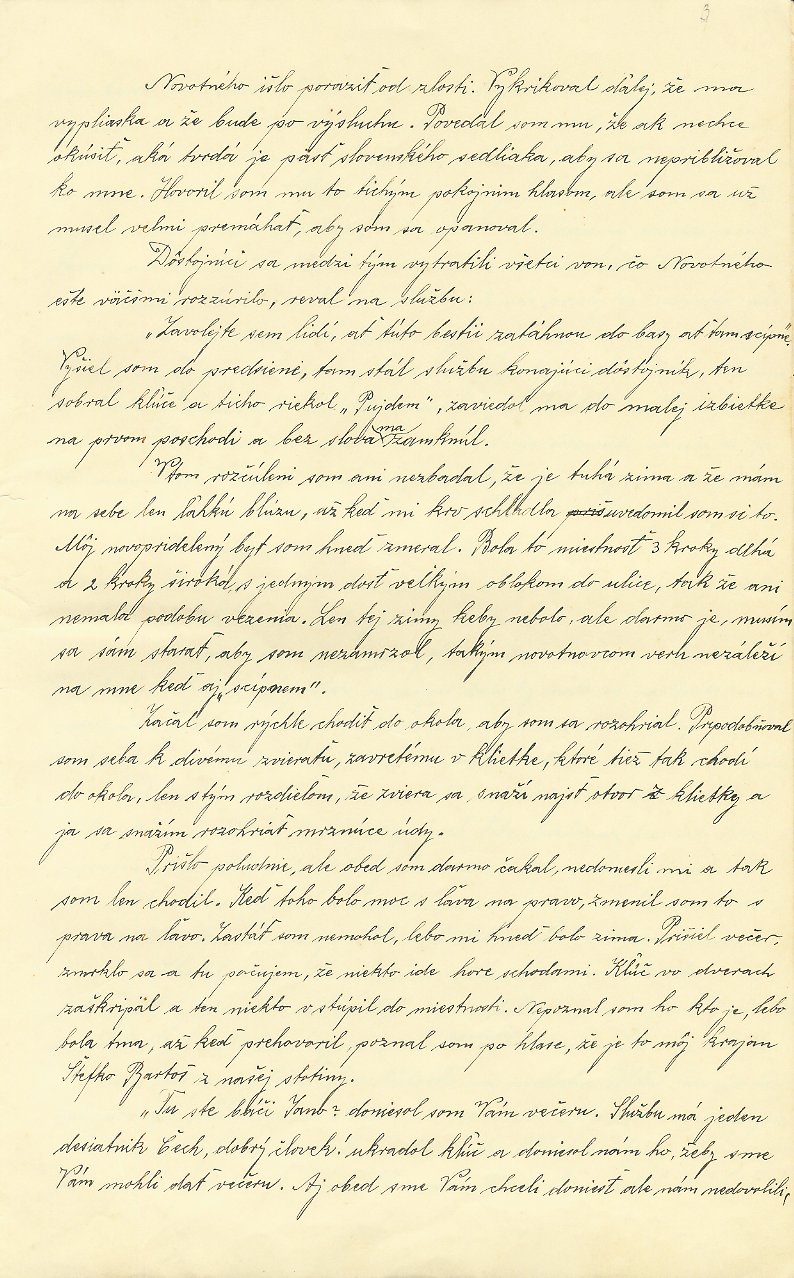 3
Novotného išlo poraziť od zlosti. Vykrikoval ďalej, že ma
vypliaska a že bude po výsluchu. Povedal som mu, že ak nechce
okúsiť, aká tvrdá je päsť slovenského sedliaka, aby sa nepribližoval
ko mne. Hovoril som mu to tichým pokojnim hlasom, ale som sa už
musel velmi premáhať, aby som sa opanoval.
Dôstojníci sa medzi tým vytratili všetci von, čo Novotného
ešte väčšmi rozzúrilo, reval na službu:
„Zavolejte sem lidí, ať túto bestii zatáhnou do basy ať tam scípne".
Vyšiel som do predsiene, tam stál službu konajúci dôstojník, ten
sobral kľúče a ticho riekol „Pujdem", zaviedol ma do malej izbietke
na prvom poschodi a bez slova ma zamknúl.
V tom rozčúlení som ani nezbadal, že je tuhá zima a že mám
na sebe len ľahkú blúzu, až keď mi krv schladla priš uvedomil som si to.
Môj novopridelený byt som hneď zmeral. Bola to miestnosť 3 kroky dlhá
a 2 kroky široká, s jedným dosť veľkým oblokom do ulice, tak že ani
nemala podobu vezenia. Len tej zimy keby nebolo, ale darmo je, musím
sa sám starať, aby som nezamrzol, takým novotnovcom veru nezáleží
na mne keď aj „scípnem".
Začal som rýchle chodiť do okola, aby som sa rozohrial. Pripodobňoval
som seba k divému zvieraťu, zavretému v klietke, ktoré tiež tak chodí
do okola, len s tým rozdielom, že zviera sa snaží najsť otvor z klietky a
ja sa snažím rozohriať mrznúce údy.
Prišlo poludnie, ale obed som darmo čakal, nedoniesli mi a tak
som len chodil. Keď toho bolo moc s ľava na pravo, zmenil som to s
prava na ľavo. Zastáť som nemohol, lebo mi hneď bolo zima. Prišiel večer,
zmrklo sa a tu počujem, že niekto ide hore schodami. Kľúč vo dverach
zaškripäl a ten niekto v stúpil do miestnosti. Nepoznal som ho kto je, lebo
bola tma, až keď prehovoril, poznal som po hlase, že je to môj krajan
Štefko Bartoš z našej stotiny.
„Tu ste báči Jano? doniesol som Vám večeru. Službu má jeden
desiatnik Čech, dobrý človek! ukradol kľúč a doniesol nám ho, žeby sme
Vám mohli dať večeru. Aj obed sme Vám chceli doniesť ale nám nedovolili,